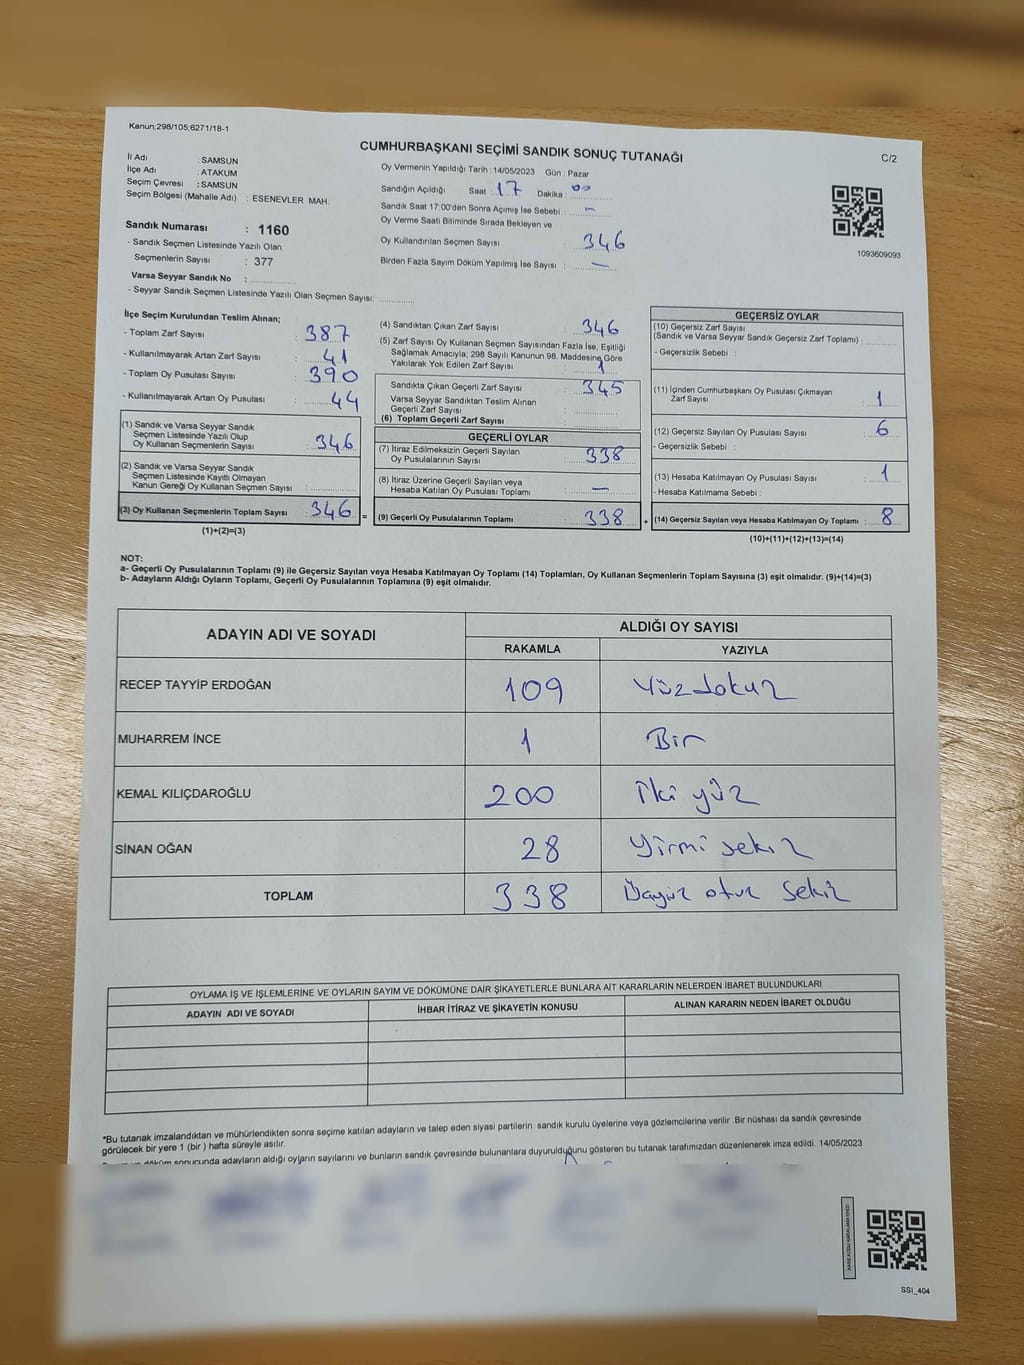 Kanun;298/105;6271/18-1
CUMHURBAŞKANI SEÇİMİ SANDIK SONUÇ TUTANAĞI
C/2
İl Adı : SAMSUN
İlçe Adı : ATAKUM
Seçim Çevresi : SAMSUN
Seçim Bölgesi (Mahalle Adı) : ESENEVLER MAH.
Oy Vermenin Yapıldığı Tarih : 14/05/2023 Gün : Pazar
Sandığın Açıldığı Saat : 17 Dakika : 00
Sandık Saat 17:00'den Sonra Açımış İse Sebebi : -
Oy Verme Saati Bitiminde Sırada Bekleyen ve
Oy Kullandırılan Seçmen Sayısı : 346
Birden Fazla Sayım Döküm Yapılmış İse Sayısı : —
1093609093
Sandık Numarası : 1160
- Sandık Seçmen Listesinde Yazılı Olan
Seçmenlerin Sayısı : 377
Varsa Seyyar Sandık No :
- Seyyar Sandık Seçmen Listesinde Yazılı Olan Seçmen Sayısı:
İlçe Seçim Kurulundan Teslim Alınan;
- Toplam Zarf Sayısı : 387
- Kullanılmayarak Artan Zarf Sayısı : 41
- Toplam Oy Pusulası Sayısı : 390
- Kullanılmayarak Artan Oy Pusulası : 44
(1) Sandık ve Varsa Seyyar Sandık
Seçmen Listesinde Yazılı Olup
Oy Kullanan Seçmenlerin Sayısı : 346
(2) Sandık ve Varsa Seyyar Sandık
Seçmen Listesinde Kayıtlı Olmayan
Kanun Gereği Oy Kullanan Seçmen Sayısı :
(3) Oy Kullanan Seçmenlerin Toplam Sayısı : 346 =
(1)+(2)=(3)
(4) Sandıktan Çıkan Zarf Sayısı : 346
(5) Zarf Sayısı Oy Kullanan Seçmen Sayısından Fazla İse, Eşitliği
Sağlamak Amacıyla; 298 Sayılı Kanunun 98. Maddesine Göre
Yakılarak Yok Edilen Zarf Sayısı : 1
Sandıkta Çıkan Geçerli Zarf Sayısı : 345
Varsa Seyyar Sandıktan Teslim Alınan
Geçerli Zarf Sayısı :
(6) Toplam Geçerli Zarf Sayısı :
GEÇERLİ OYLAR
(7) İtiraz Edilmeksizin Geçerli Sayılan
Oy Pusulalarının Sayısı : 338
(8) İtiraz Üzerine Geçerli Sayılan veya
Hesaba Katılan Oy Pusulası Toplamı : —
(9) Geçerli Oy Pusulalarının Toplamı : 338 +
GEÇERSİZ OYLAR
(10) Geçersiz Zarf Sayısı
(Sandık ve Varsa Seyyar Sandık Geçersiz Zarf Toplamı) :
- Geçersizlik Sebebi :
(11) İçinden Cumhurbaşkanı Oy Pusulası Çıkmayan
Zarf Sayısı : 1
(12) Geçersiz Sayılan Oy Pusulası Sayısı : 6
- Geçersizlik Sebebi :
(13) Hesaba Katılmayan Oy Pusulası Sayısı : 1
- Hesaba Katılmama Sebebi :
(14) Geçersiz Sayılan veya Hesaba Katılmayan Oy Toplamı : 8
(10)+(11)+(12)+(13)=(14)
NOT:
a- Geçerli Oy Pusulalarının Toplamı (9) ile Geçersiz Sayılan veya Hesaba Katılmayan Oy Toplamı (14) Toplamları, Oy Kullanan Seçmenlerin Toplam Sayısına (3) eşit olmalıdır. (9)+(14)=(3)
b- Adayların Aldığı Oyların Toplamı, Geçerli Oy Pusulalarının Toplamına (9) eşit olmalıdır.
ADAYIN ADI VE SOYADI
ALDIĞI OY SAYISI
RAKAMLA YAZIYLA
RECEP TAYYİP ERDOĞAN 109 Yüzdokuz
MUHARREM İNCE 1 Bir
KEMAL KILIÇDAROĞLU 200 İki yüz
SİNAN OĞAN 28 Yirmi sekiz
TOPLAM 338 Üçyüz otuz sekiz
OYLAMA İŞ VE İŞLEMLERİNE VE OYLARIN SAYIM VE DÖKÜMÜNE DAİR ŞİKAYETLERLE BUNLARA AİT KARARLARIN NELERDEN İBARET BULUNDUKLARI
ADAYIN ADI VE SOYADI İHBAR İTİRAZ VE ŞİKAYETİN KONUSU ALINAN KARARIN NEDEN İBARET OLDUĞU
*Bu tutanak imzalandıktan ve mühürlendikten sonra seçime katılan adayların ve talep eden siyasi partilerin sandık kurulu üyelerine veya gözlemcilerine verilir .Bir nüshası da sandık çevresinde
görülecek bir yere 1 (bir ) hafta süreyle asılır.
döküm sonucunda adayların aldığı oyların sayılarını ve bunların sandık çevresinde bulunanlara duyurulduğunu gösteren bu tutanak tarafımızdan düzenlenerek imza edildi. 14/05/2023
SSI_404